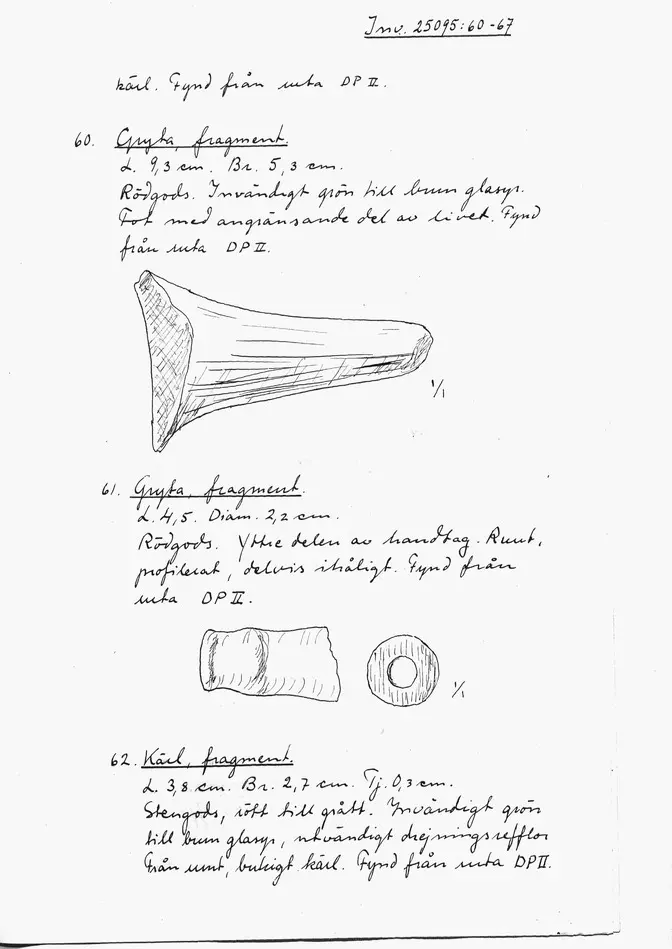 Inv. 25095:60-67
kärl. Fynd från ruta DP II.
60. Gryta, fragment.
L. 9,3 cm. Br. 5,3 cm.
Rödgods. Invändigt grön till brun glasyr.
Fot med angränsande del av livet. Fynd
från ruta DP II.
1/1
61. Gryta, fragment.
L. 4,5. Diam. 2,2 cm.
Rödgods. Yttre delen av handtag. Runt,
profilerat, delvis ihåligt. Fynd från
ruta DP II.
1/1
62. Kärl, fragment.
L. 3,8 cm. Br. 2,7 cm. Tj. 0,3 cm.
Stengods, rött till grått. Invändigt grön
till brun glasyr, utvändigt drejningsrefflor
Från runt, bukigt kärl. Fynd från ruta DP II.